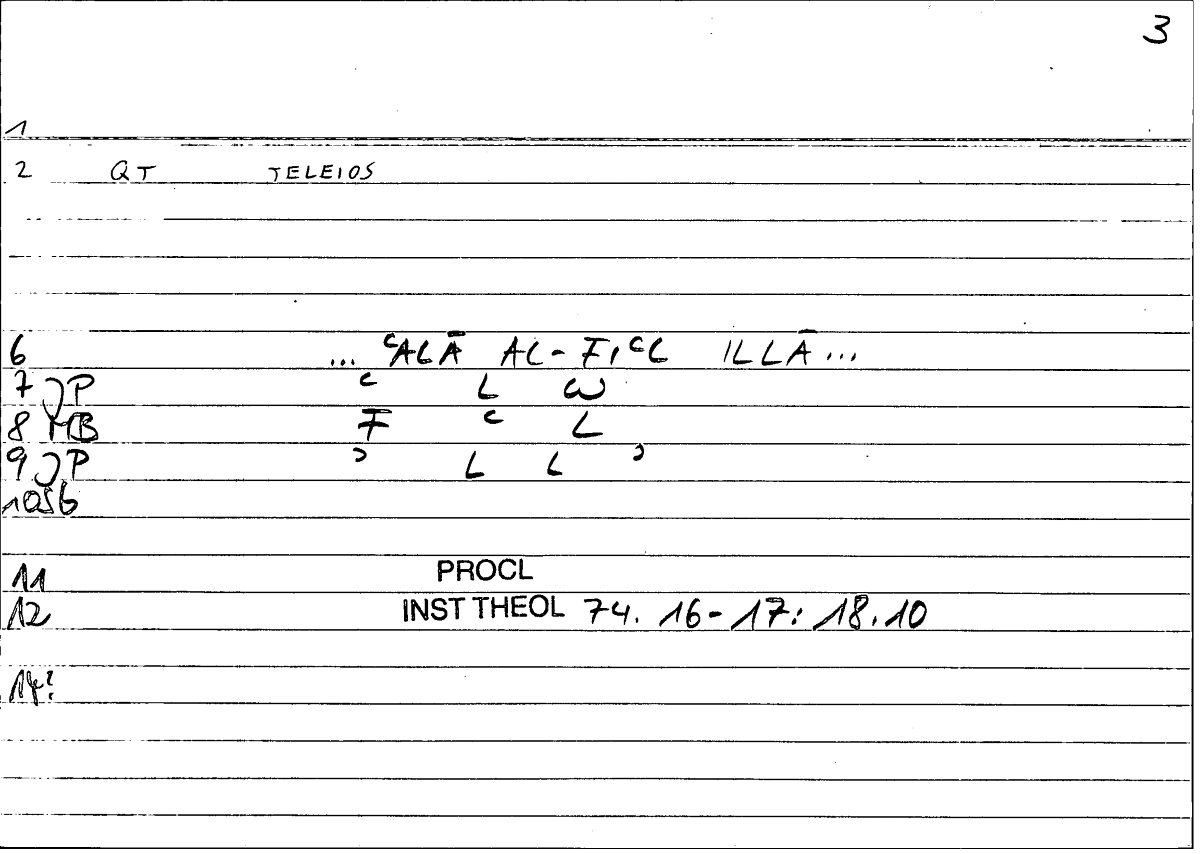 3
1
2 QT TELEIOS
6 ... ᶜALĀ AL-FIᶜL ILLĀ...
7 JP ᶜ L W
8 MB F ᶜ L
9 JP ʾ L L ʾ
10
11 PROCL
12 INST THEOL 74. 16-17: 18.10